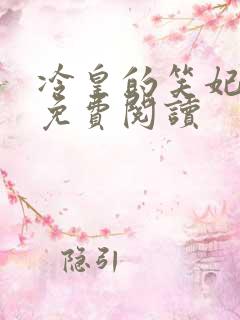 冷皇的笑妃
免費閱讀
隐引